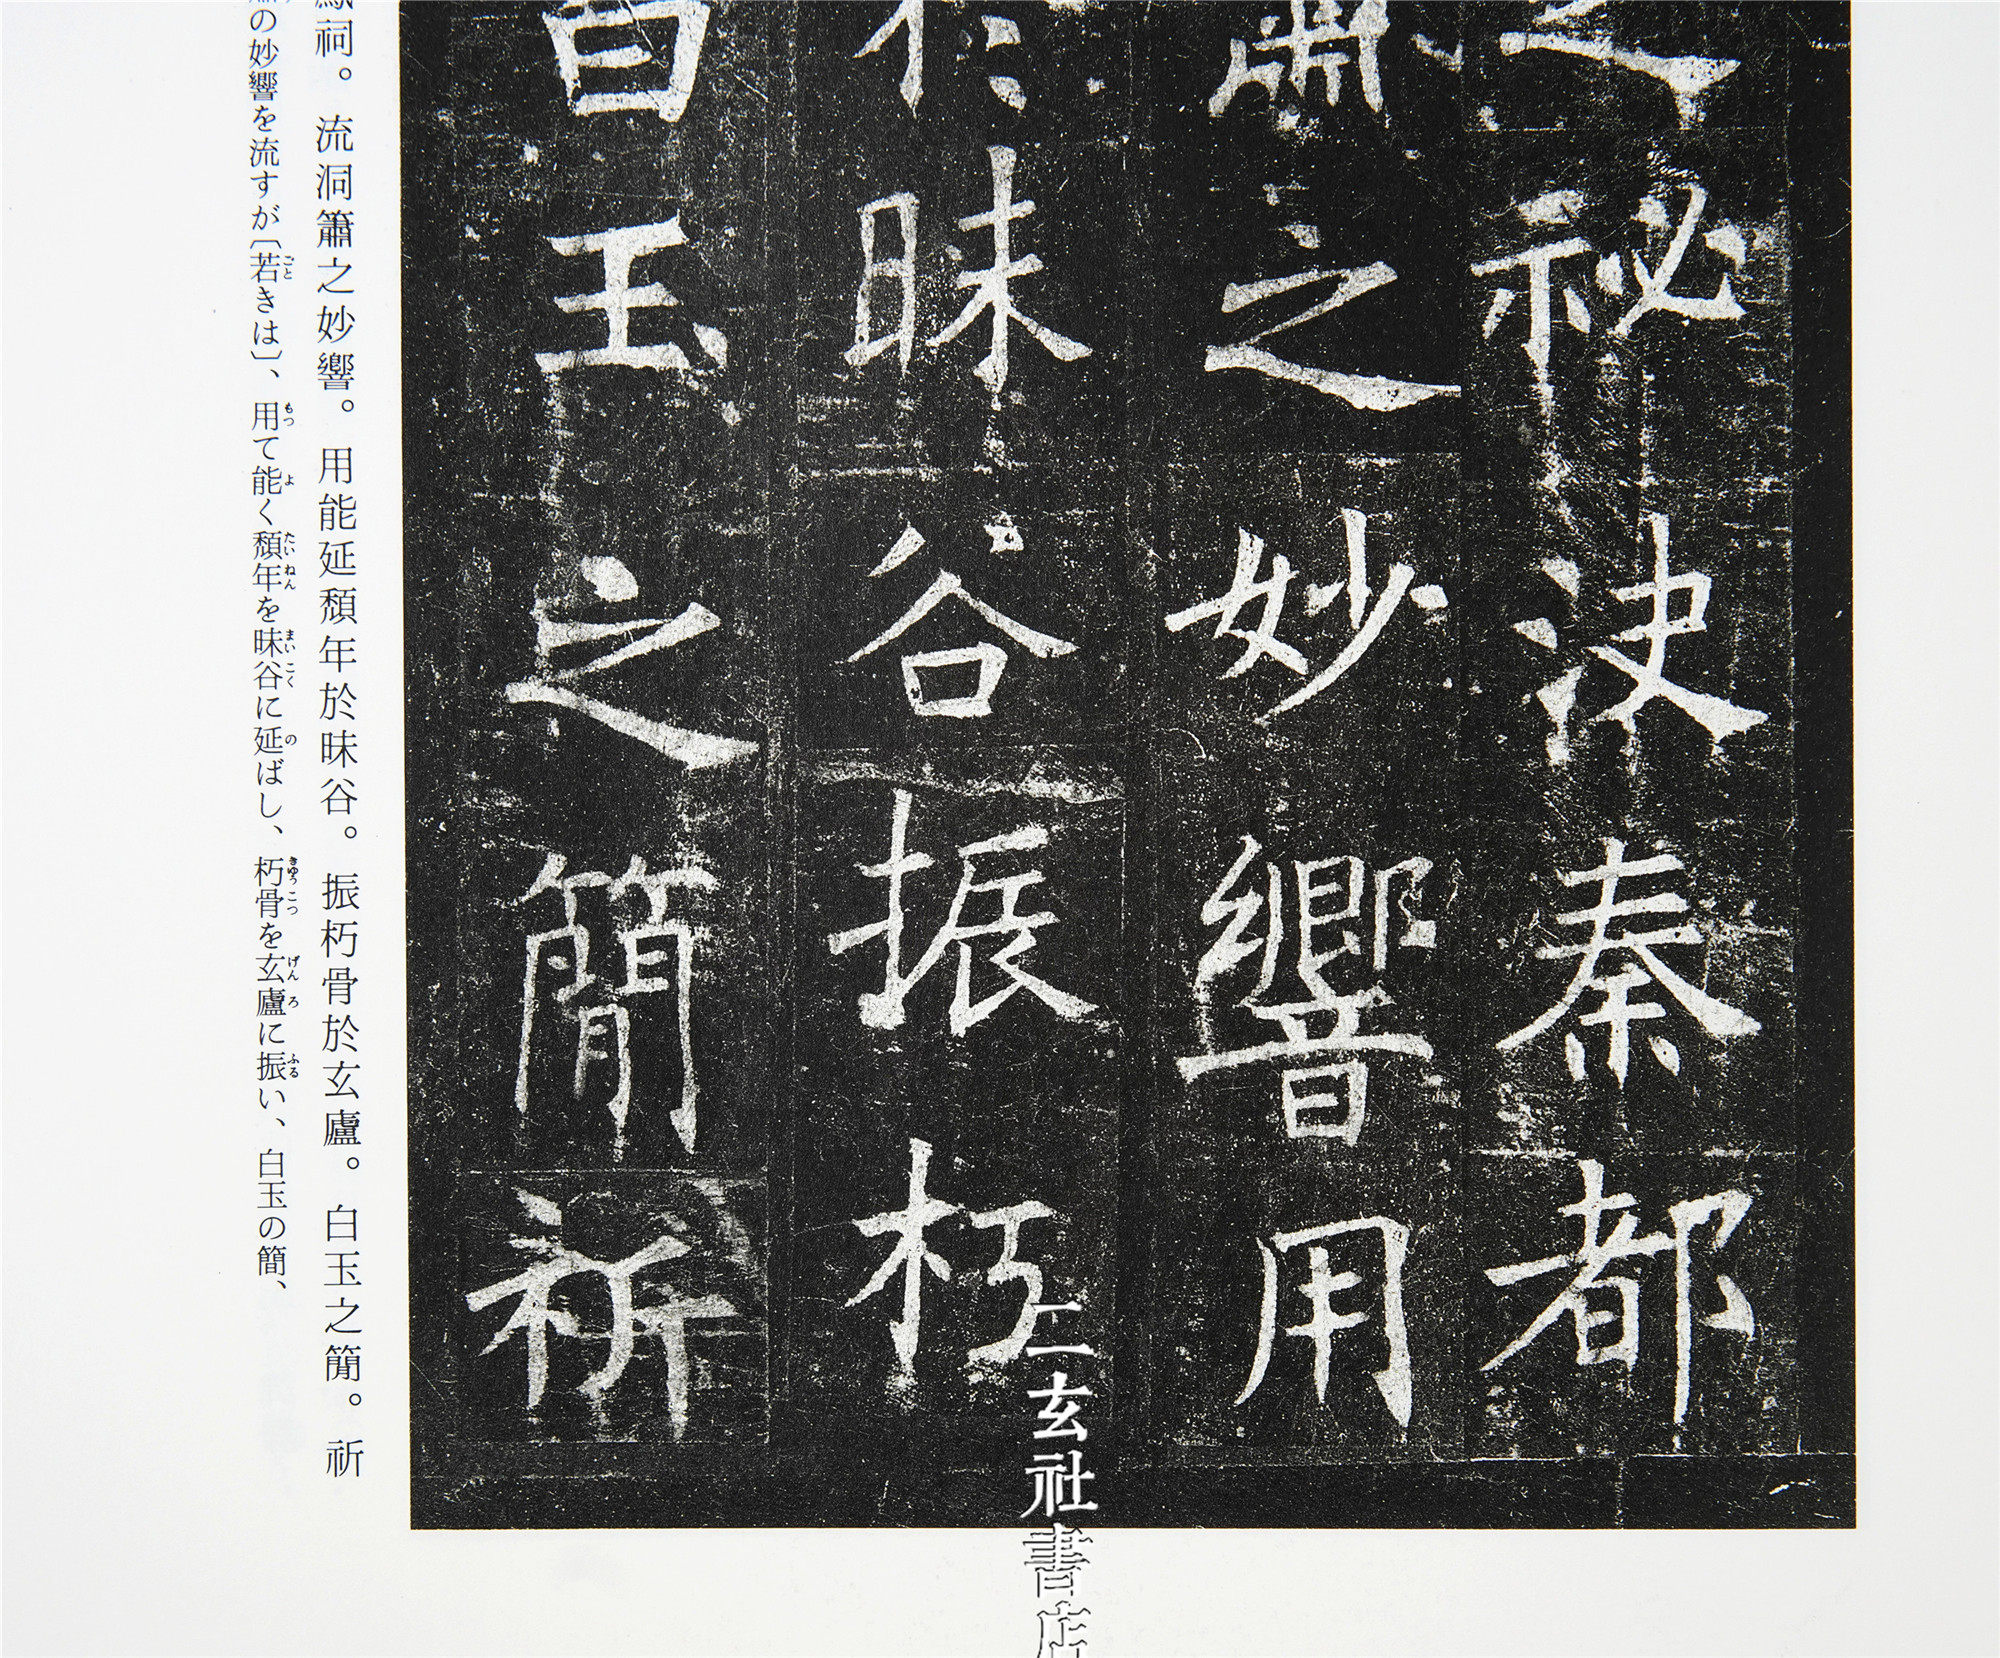 之祕决秦都
簫之妙響用
於昧谷振朽
白玉之簡祈
祠。流洞簫之妙響。用能延頽年於昧谷。振朽骨於玄廬。白玉之簡。祈
の妙響を流すが〔若きは〕、用て能く頽年を昧谷に延ばし、朽骨を玄廬に振い、白玉の簡、
二玄社書店